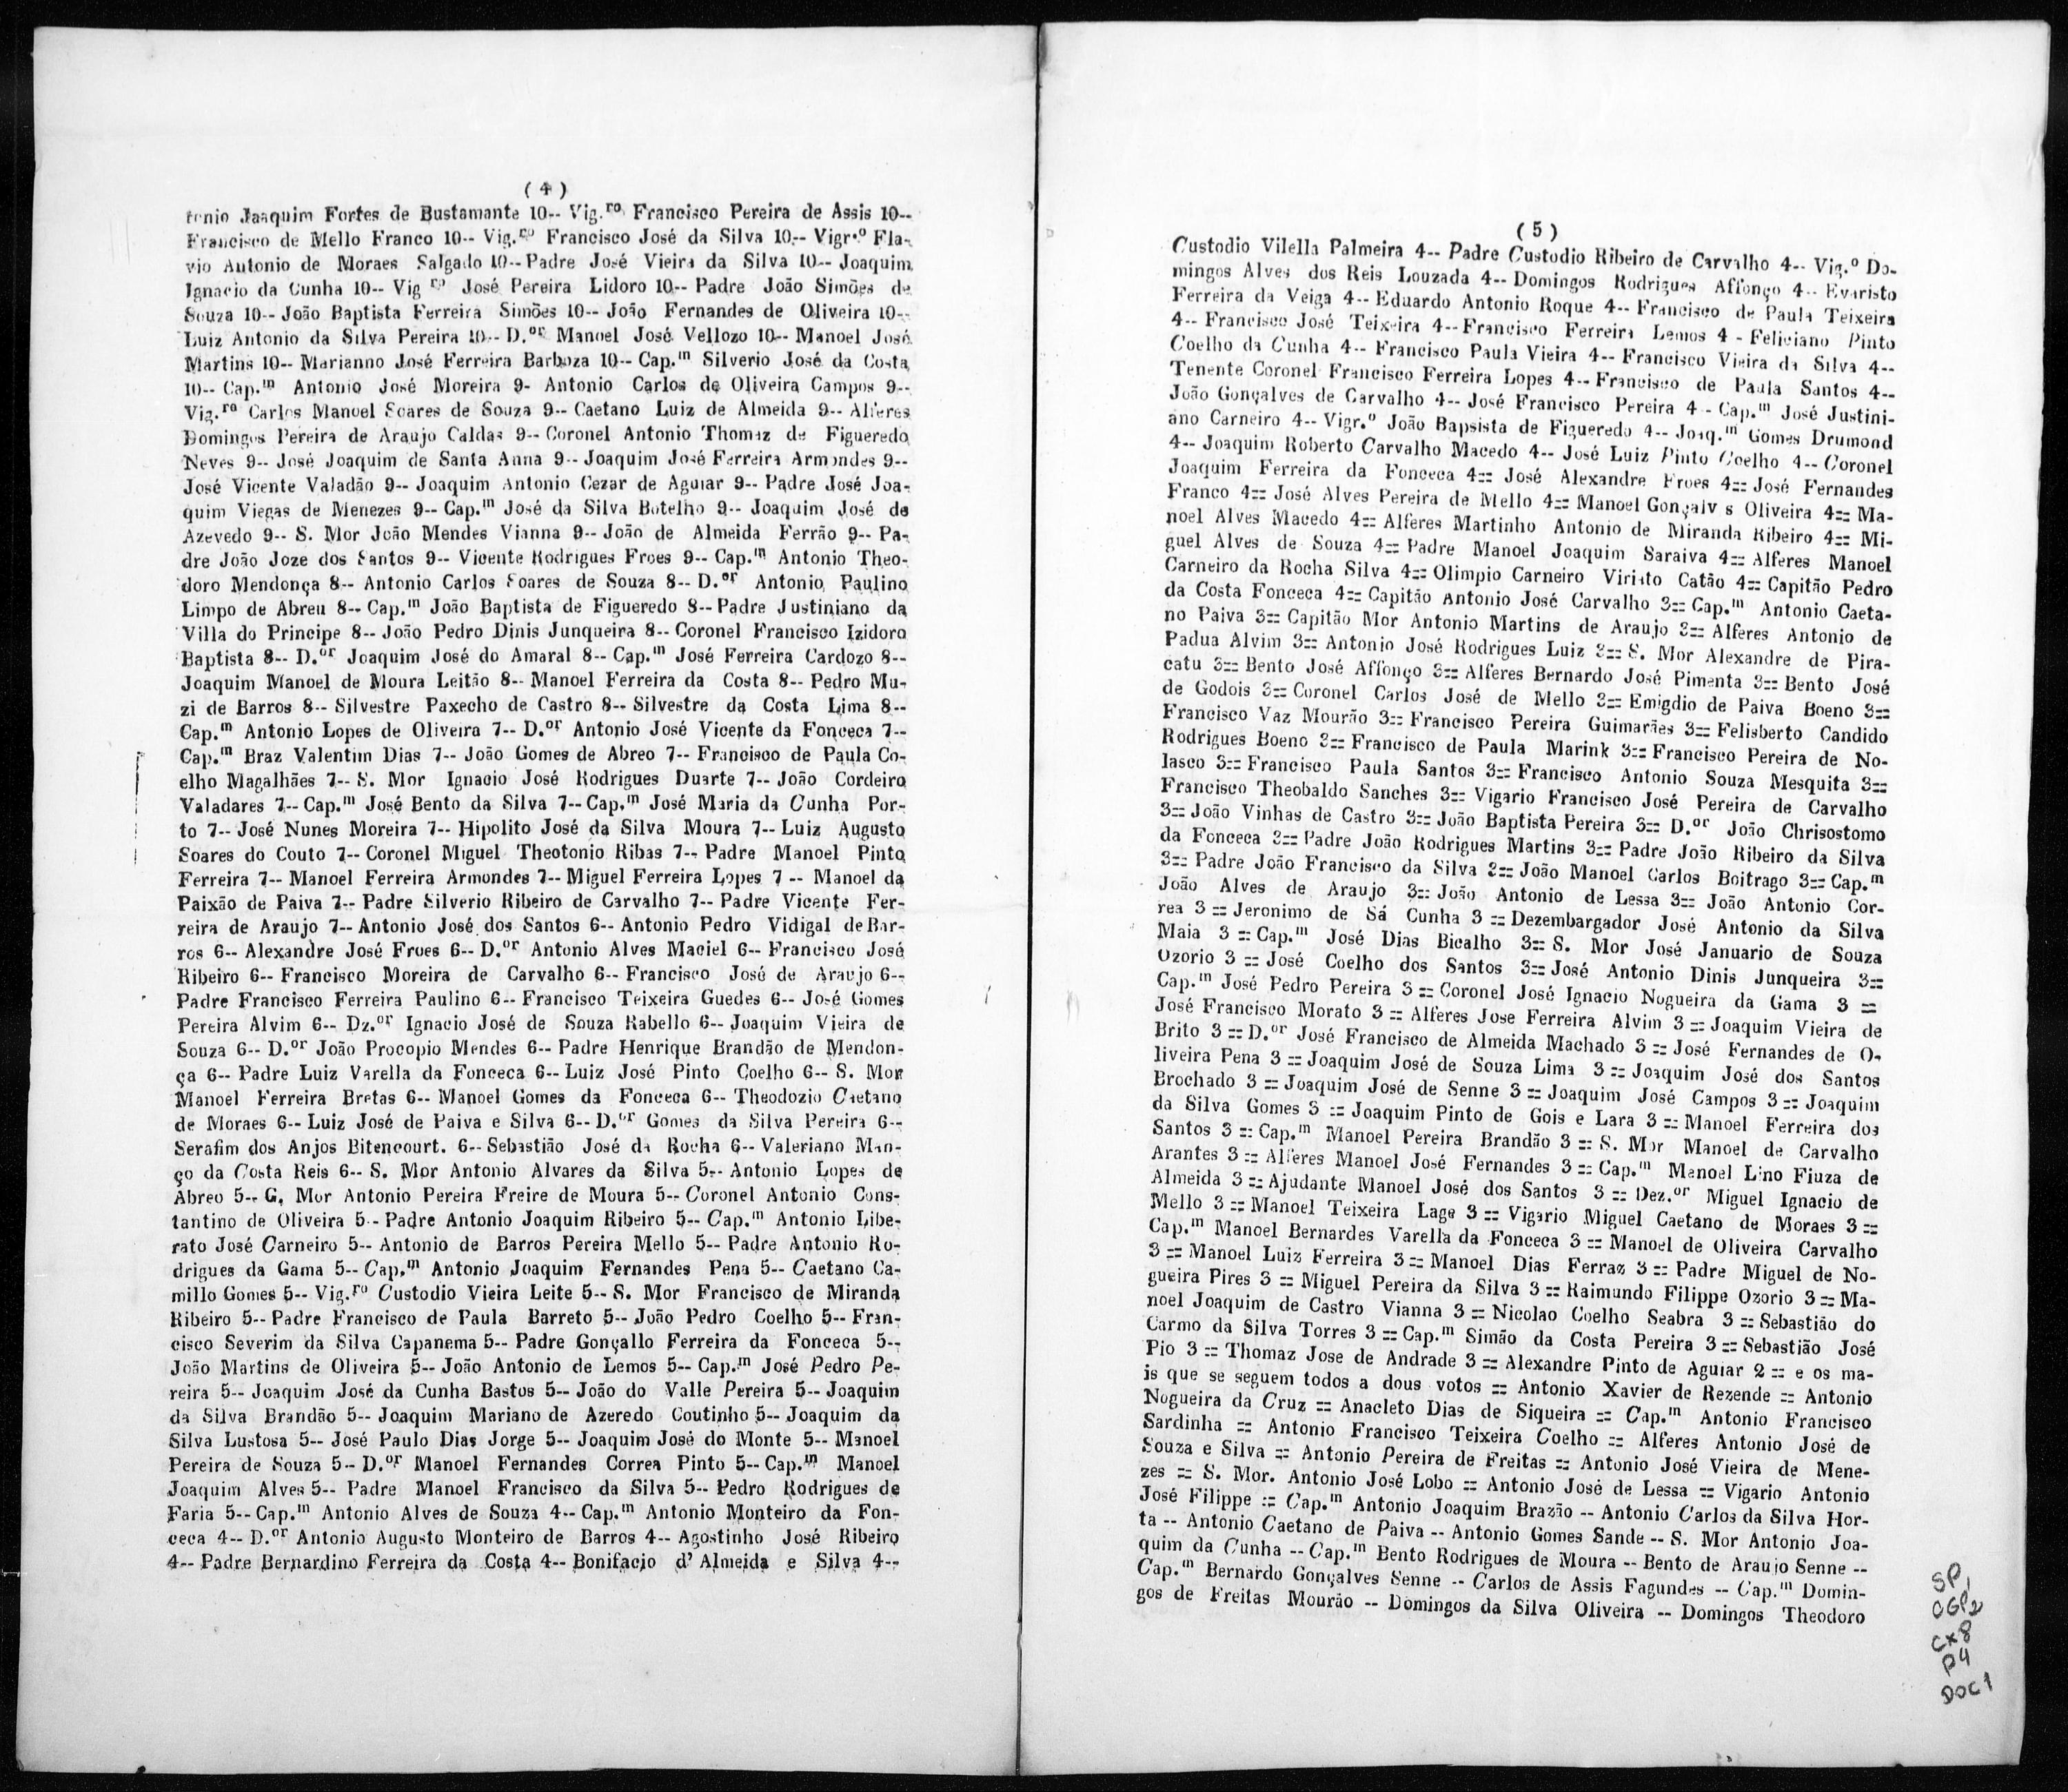 ( 4 )
tonio Jaaquim Fortes de Bustamante 10-- Vig.ro Francisco Pereira de Assis 10--
Francisco de Mello Franco 10-- Vig.ro Francisco José da Silva 10-- Vigr.o Fla-
vio Antonio de Moraes Salgado 10-- Padre José Vieira da Silva 10-- Joaquim
Ignacio da Cunha 10-- Vig ro José Pereira Lidoro 10-- Padre João Simões de
Souza 10-- João Baptista Ferreira Simões 10-- João Fernandes de Oliveira 10--
Luiz Antonio da Silva Pereira 10-- D.or Manoel José Vellozo 10-- Manoel José
Martins 10-- Marianno José Ferreira Barboza 10-- Cap.m Silverio José da Costa
10-- Cap.m Antonio José Moreira 9- Antonio Carlos de Oliveira Campos 9--
Vig.ro Carlos Manoel Soares de Souza 9-- Caetano Luiz de Almeida 9-- Alferes
Domingos Pereira de Araujo Caldas 9-- Coronel Antonio Thomaz de Figueredo
Neves 9-- José Joaquim de Santa Anna 9-- Joaquim José Ferreira Armondes 9--
José Vicente Valadão 9-- Joaquim Antonio Cezar de Aguiar 9-- Padre José Joa-
quim Viegas de Menezes 9-- Cap.m José da Silva Botelho 9-- Joaquim José de
Azevedo 9-- S. Mor João Mendes Vianna 9-- João de Almeida Ferrão 9-- Pa-
dre João Joze dos Santos 9-- Vicente Rodrigues Froes 9-- Cap.m Antonio Theo-
doro Mendonça 8-- Antonio Carlos Soares de Souza 8-- D.or Antonio Paulino
Limpo de Abreu 8-- Cap.m João Baptista de Figueredo 8-- Padre Justiniano da
Villa do Principe 8-- João Pedro Dinis Junqueira 8-- Coronel Francisco Izidoro
Baptista 8-- D.or Joaquim José do Amaral 8-- Cap.m José Ferreira Cardozo 8--
Joaquim Manoel de Moura Leitão 8-- Manoel Ferreira da Costa 8-- Pedro Mu-
zi de Barros 8-- Silvestre Paxecho de Castro 8-- Silvestre da Costa Lima 8--
Cap.m Antonio Lopes de Oliveira 7-- D.or Antonio José Vicente da Fonceca 7--
Cap.m Braz Valentim Dias 7-- João Gomes de Abreo 7-- Francisco de Paula Co-
elho Magalhães 7-- S. Mor Ignacio José Rodrigues Duarte 7-- João Cordeiro
Valadares 7-- Cap.m José Bento da Silva 7-- Cap.m José Maria da Cunha Por-
to 7-- José Nunes Moreira 7-- Hipolito José da Silva Moura 7-- Luiz Augusto
Soares do Couto 7-- Coronel Miguel Theotonio Ribas 7-- Padre Manoel Pinto
Ferreira 7-- Manoel Ferreira Armondes 7-- Miguel Ferreira Lopes 7 -- Manoel da
Paixão de Paiva 7-- Padre Silverio Ribeiro de Carvalho 7-- Padre Vicente Fer-
reira de Araujo 7-- Antonio José dos Santos 6-- Antonio Pedro Vidigal de Bar-
ros 6-- Alexandre José Froes 6-- D.or Antonio Alves Maciel 6-- Francisco José
Ribeiro 6-- Francisco Moreira de Carvalho 6-- Francisco José de Araujo 6--
Padre Francisco Ferreira Paulino 6-- Francisco Teixeira Guedes 6-- José Gomes
Pereira Alvim 6-- Dz.or Ignacio José de Souza Rabello 6-- Joaquim Vieira de
Souza 6-- D.or João Procopio Mendes 6-- Padre Henrique Brandão de Mendon-
ça 6-- Padre Luiz Varella da Fonceca 6-- Luiz José Pinto Coelho 6-- S. Mor
Manoel Ferreira Bretas 6-- Manoel Gomes da Fonceca 6-- Theodozio Caetano
de Moraes 6-- Luiz José de Paiva e Silva 6-- D.or Gomes da Silva Pereira 6--
Serafim dos Anjos Bitencourt. 6-- Sebastião José da Rocha 6-- Valeriano Man-
ço da Costa Reis 6-- S. Mor Antonio Alvares da Silva 5-- Antonio Lopes de
Abreo 5-- G. Mor Antonio Pereira Freire de Moura 5-- Coronel Antonio Cons-
tantino de Oliveira 5-- Padre Antonio Joaquim Ribeiro 5-- Cap.m Antonio Libe-
rato José Carneiro 5-- Antonio de Barros Pereira Mello 5-- Padre Antonio Ro-
drigues da Gama 5-- Cap.m Antonio Joaquim Fernandes Pena 5-- Caetano Ca-
millo Gomes 5-- Vig.ro Custodio Vieira Leite 5-- S. Mor Francisco de Miranda
Ribeiro 5-- Padre Francisco de Paula Barreto 5-- João Pedro Coelho 5-- Fran-
cisco Severim da Silva Capanema 5-- Padre Gonçallo Ferreira da Fonceca 5--
João Martins de Oliveira 5-- João Antonio de Lemos 5-- Cap.m José Pedro Pe-
reira 5-- Joaquim José da Cunha Bastos 5-- João do Valle Pereira 5-- Joaquim
da Silva Brandão 5-- Joaquim Mariano de Azeredo Coutinho 5-- Joaquim da
Silva Lustosa 5-- José Paulo Dias Jorge 5-- Joaquim José do Monte 5-- Manoel
Pereira de Souza 5-- D.or Manoel Fernandes Correa Pinto 5-- Cap.m Manoel
Joaquim Alves 5-- Padre Manoel Francisco da Silva 5-- Pedro Rodrigues de
Faria 5-- Cap.m Antonio Alves de Souza 4-- Cap.m Antonio Monteiro da Fon-
ceca 4-- D.or Antonio Augusto Monteiro de Barros 4-- Agostinho José Ribeiro
4-- Padre Bernardino Ferreira da Costa 4-- Bonifacio d' Almeida e Silva 4--
( 5 )
Custodio Vilella Palmeira 4-- Padre Custodio Ribeiro de Carvalho 4-- Vig.o Do-
mingos Alves dos Reis Louzada 4-- Domingos Rodrigues Affonço 4-- Evaristo
Ferreira da Veiga 4-- Eduardo Antonio Roque 4-- Francisco de Paula Teixeira
4-- Francisco José Teixeira 4-- Francisco Ferreira Lemos 4 - Feliciano Pinto
Coelho da Cunha 4-- Francisco Paula Vieira 4-- Francisco Vieira da Silva 4--
Tenente Coronel Francisco Ferreira Lopes 4-- Francisco de Paula Santos 4--
João Gonçalves de Carvalho 4-- José Francisco Pereira 4 - Cap.m José Justini-
ano Carneiro 4-- Vigr.o João Bapsista de Figueredo 4-- Joaq.m Gomes Drumond
4-- Joaquim Roberto Carvalho Macedo 4-- José Luiz Pinto Coelho 4-- Coronel
Joaquim Ferreira da Fonceca 4== José Alexandre Froes 4== José Fernandes
Franco 4== José Alves Pereira de Mello 4== Manoel Gonçalv s Oliveira 4== Ma-
noel Alves Macedo 4== Alferes Martinho Antonio de Miranda Ribeiro 4== Mi-
guel Alves de Souza 4== Padre Manoel Joaquim Saraiva 4== Alferes Manoel
Carneiro da Rocha Silva 4== Olimpio Carneiro Viristo Catão 4== Capitão Pedro
da Costa Fonceca 4== Capitão Antonio José Carvalho 3== Cap.m Antonio Caeta-
no Paiva 3== Capitão Mor Antonio Martins de Araujo 3== Alferes Antonio de
Padua Alvim 3== Antonio José Rodrigues Luiz 3== S. Mor Alexandre de Pira-
catu 3== Bento José Affonço 3== Alferes Bernardo José Pimenta 3== Bento José
de Godois 3== Coronel Carlos José de Mello 3== Emigdio de Paiva Boeno 3==
Francisco Vaz Mourão 3== Francisco Pereira Guimarães 3== Felisberto Candido
Rodrigues Boeno 3== Francisco de Paula Marink 3== Francisco Pereira de No-
lasco 3== Francisco Paula Santos 3== Francisco Antonio Souza Mesquita 3==
Francisco Theobaldo Sanches 3== Vigario Francisco José Pereira de Carvalho
3== João Vinhas de Castro 3== João Baptista Pereira 3== D.or João Chrisostomo
da Fonceca 3== Padre João Rodrigues Martins 3== Padre João Ribeiro da Silva
3== Padre João Francisco da Silva 3== João Manoel Carlos Boitrago 3== Cap.m
João Alves de Araujo 3== João Antonio de Lessa 3== João Antonio Cor-
rea 3 == Jeronimo de Sá Cunha 3 == Dezembargador José Antonio da Silva
Maia 3 == Cap.m José Dias Bicalho 3== S. Mor José Januario de Souza
Ozorio 3 == José Coelho dos Santos 3== José Antonio Dinis Junqueira 3==
Cap.m José Pedro Pereira 3 == Coronel José Ignacio Nogueira da Gama 3 ==
José Francisco Morato 3 == Alferes Jose Ferreira Alvim 3 == Joaquim Vieira de
Brito 3 == D.or José Francisco de Almeida Machado 3 == José Fernandes de O-
liveira Pena 3 == Joaquim José de Souza Lima 3 == Joaquim José dos Santos
Brochado 3 == Joaquim José de Senne 3 == Joaquim José Campos 3 == Joaquim
da Silva Gomes 3 == Joaquim Pinto de Gois e Lara 3 == Manoel Ferreira dos
Santos 3 == Cap.m Manoel Pereira Brandão 3 == S. Mor Manoel de Carvalho
Arantes 3 == Alferes Manoel José Fernandes 3 == Cap.m Manoel Lino Fiuza de
Almeida 3 == Ajudante Manoel José dos Santos 3 == Dez.or Miguel Ignacio de
Mello 3 == Manoel Teixeira Lage 3 == Vigario Miguel Caetano de Moraes 3 ==
Cap.m Manoel Bernardes Varella da Fonceca 3 == Manoel de Oliveira Carvalho
3 == Manoel Luiz Ferreira 3 == Manoel Dias Ferraz 3 == Padre Miguel de No-
gueira Pires 3 == Miguel Pereira da Silva 3 == Raimundo Filippe Ozorio 3 == Ma-
noel Joaquim de Castro Vianna 3 == Nicolao Coelho Seabra 3 == Sebastião do
Carmo da Silva Torres 3 == Cap.m Simão da Costa Pereira 3 == Sebastião José
Pio 3 == Thomaz Jose de Andrade 3 == Alexandre Pinto de Aguiar 2 == e os ma-
is que se seguem todos a dous votos == Antonio Xavier de Rezende == Antonio
Nogueira da Cruz == Anacleto Dias de Siqueira == Cap.m Antonio Francisco
Sardinha == Antonio Francisco Teixeira Coelho == Alferes Antonio José de
Souza e Silva == Antonio Pereira de Freitas == Antonio José Vieira de Mene-
zes == S. Mor. Antonio José Lobo == Antonio José de Lessa == Vigario Antonio
José Filippe == Cap.m Antonio Joaquim Brazão -- Antonio Carlos da Silva Hor-
ta -- Antonio Caetano de Paiva -- Antonio Gomes Sande -- S. Mor Antonio Joa-
quim da Cunha -- Cap.m Bento Rodrigues de Moura -- Bento de Araujo Senne --
Cap.m Bernardo Gonçalves Senne -- Carlos de Assis Fagundes -- Cap.m Domin-
gos de Freitas Mourão -- Domingos da Silva Oliveira -- Domingos Theodoro
SP,
CGP2
Cx8
P4
DOC1